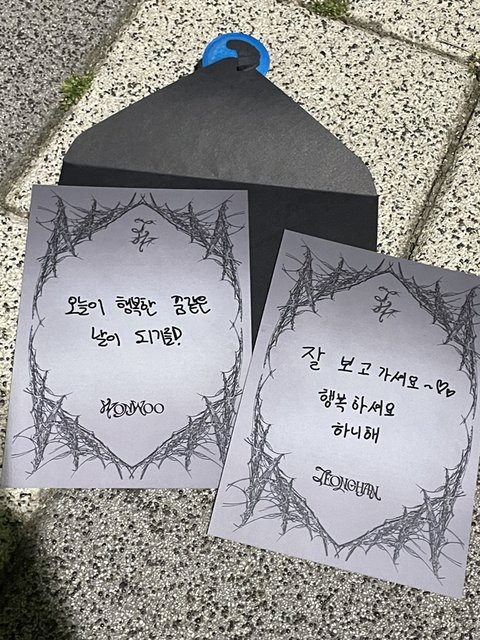 오늘이 행복한 꿈같은
날이 되기를!
WONWOO
잘 보고 가세요~♡♡
행복하세요
하니해
JEONGHAN